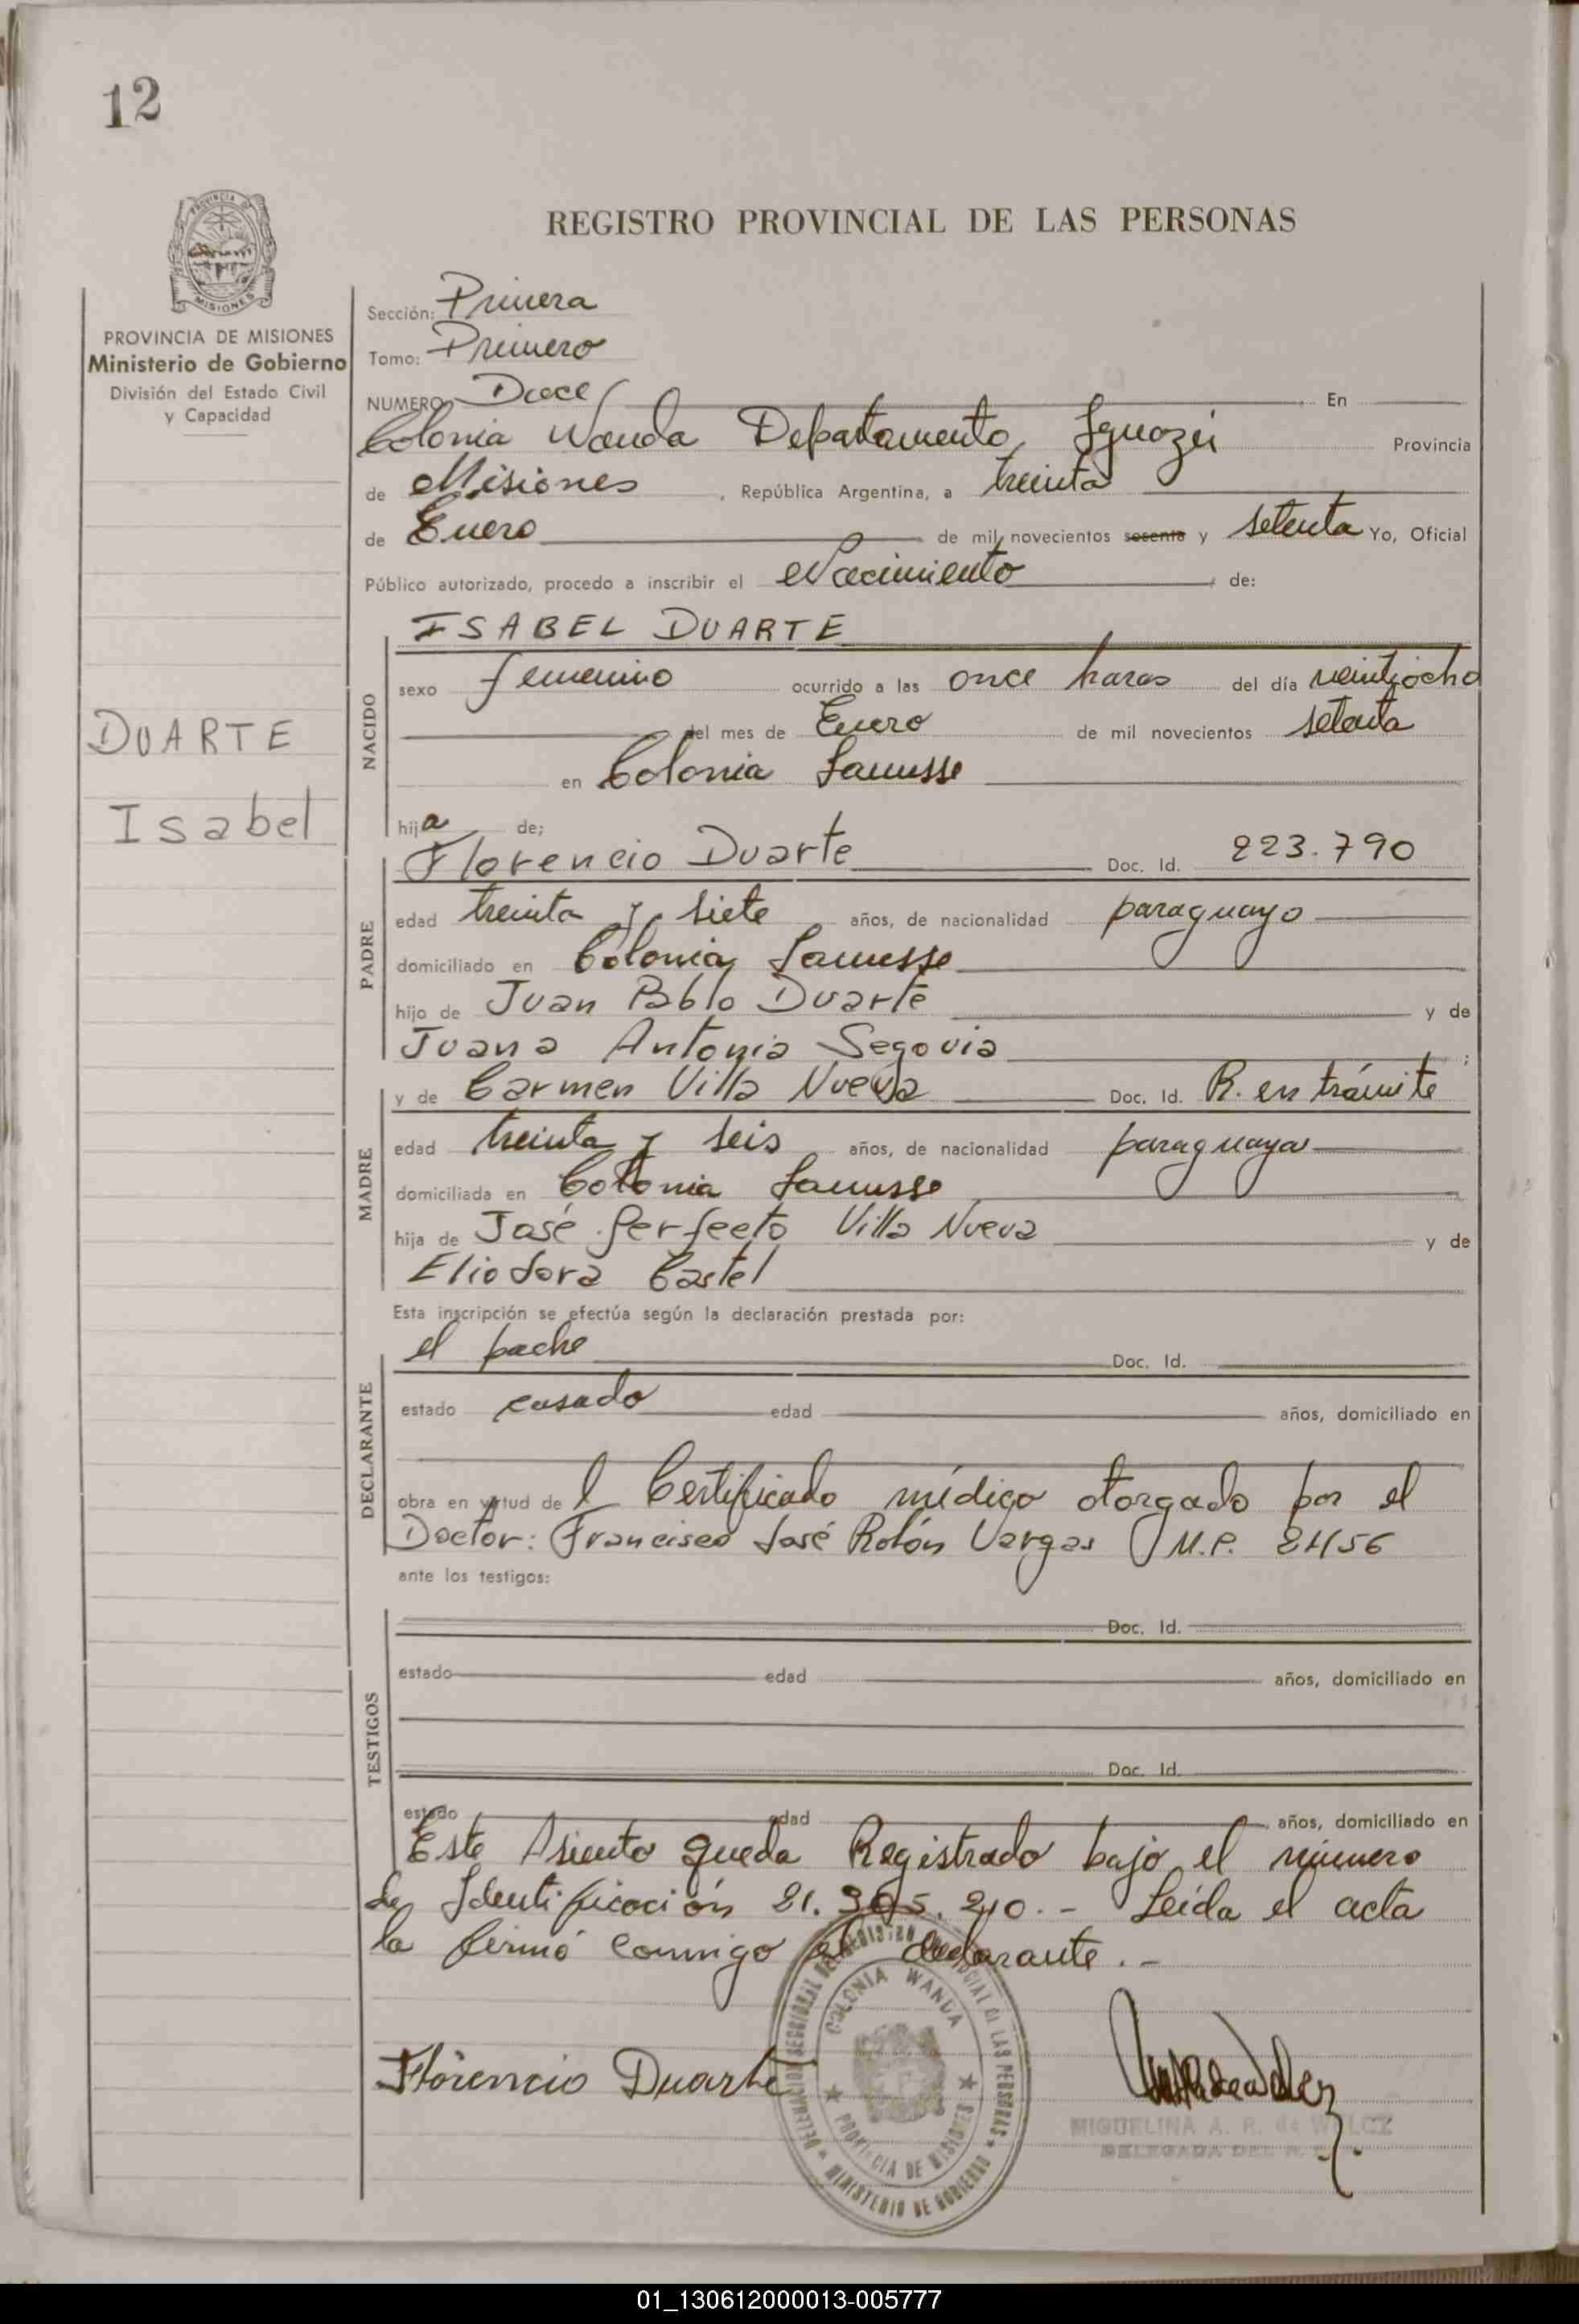 12
PROVINCIA DE MISIONES
MISIONES
PROVINCIA DE MISIONES
Ministerio de Gobierno
División del Estado Civil
y Capacidad
DUARTE
Isabel
REGISTRO PROVINCIAL DE LAS PERSONAS
Sección: Primera
Tomo: Primero
NUMERO Doce En
Colonia Wanda Departamento Iguazú Provincia
de Misiones, República Argentina, a treinta
de Enero de mil novecientos sesenta y setenta Yo, Oficial
Público autorizado, procedo a inscribir el Nacimiento de:
ISABEL DUARTE
NACIDO
sexo femenino ocurrido a las once horas del día veintiocho
del mes de Enero de mil novecientos setenta
en Colonia Lanusse
hija de;
PADRE
Florencio Duarte Doc. Id. 223.790
edad treinta y siete años, de nacionalidad paraguayo
domiciliado en Colonia Lanusse
hijo de Juan Pablo Duarte y de
Juana Antonia Segovia ;
MADRE
y de Carmen Villa Nueva Doc. Id. R. en trámite
edad treinta y seis años, de nacionalidad paraguaya
domiciliada en Colonia Lanusse
hija de José Perfecto Villa Nueva y de
Eliodora Castel
Esta inscripción se efectúa según la declaración prestada por:
DECLARANTE
el padre Doc. Id.
estado casado edad años, domiciliado en
obra en virtud de l Certificado médico otorgado por el
Doctor: Francisco José Rolón Vargas M.P. 2456
ante los testigos:
TESTIGOS
Doc. Id.
estado edad años, domiciliado en
Doc. Id.
estado edad años, domiciliado en
Este Asiento queda Registrado bajo el número
de Identificación 21.305.210.- Leída el acta
la firmó conmigo el declarante.-
Florencio Duarte
COLONIA WANDA
PROVINCIA DE MISIONES
MINISTERIO DE GOBIERNO
MIGUELINA A. R. de
DELEGADA DEL R.
01_130612000013-005777